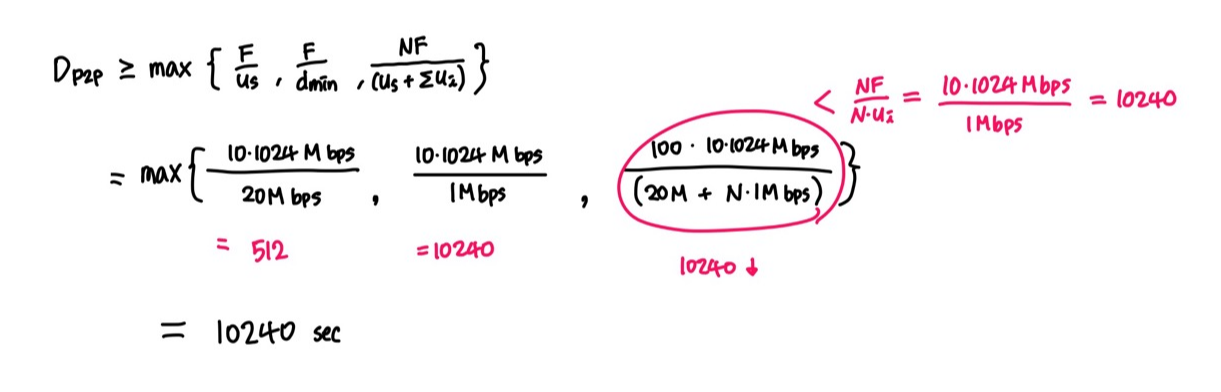 D_P2P ≥ max { F/us , F/dmin , NF/(us + Σui) }
< NF/N·ui = 10·1024 Mbps/1Mbps = 10240
= max { 10·1024 M bps/20M bps , 10·1024 M bps/1M bps , 100 · 10·1024 M bps/(20M + N·1M bps) }
= 512 =10240 10240 ↓
= 10240 sec